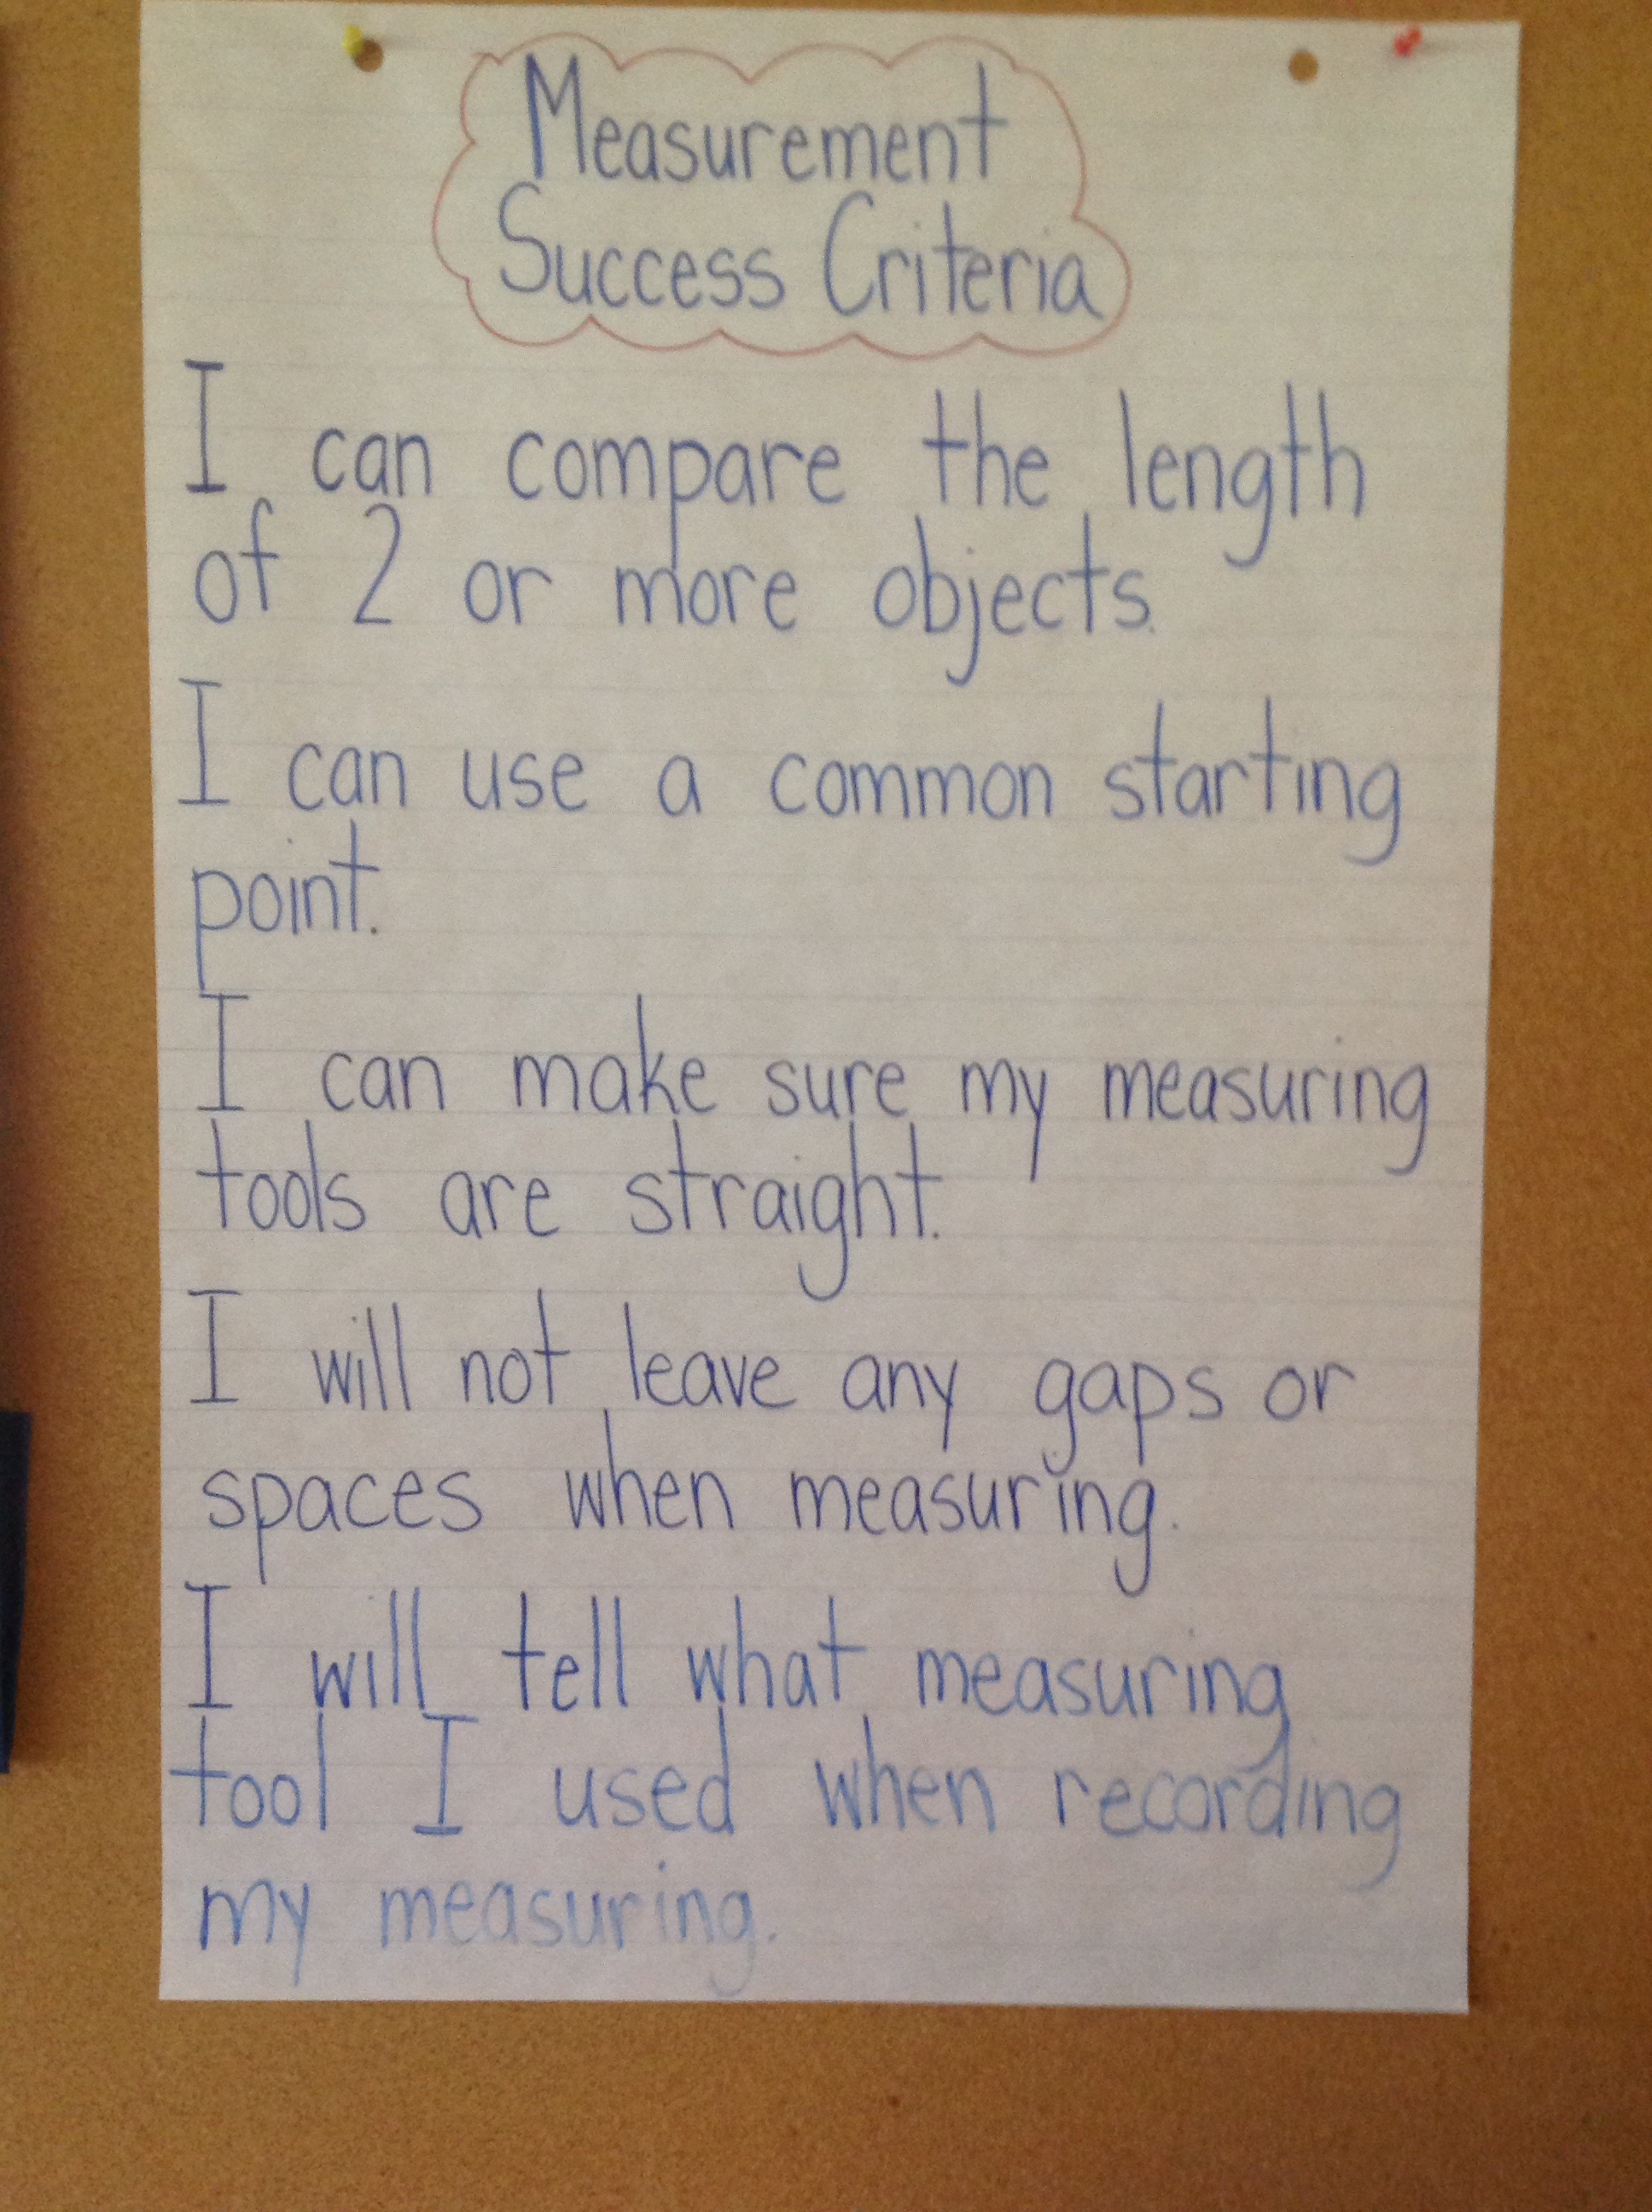 Measurement
Success Criteria
I can compare the length
of 2 or more objects.
I can use a common starting
point.
I can make sure my measuring
tools are straight.
I will not leave any gaps or
spaces when measuring.
I will tell what measuring
tool I used when recording
my measuring.